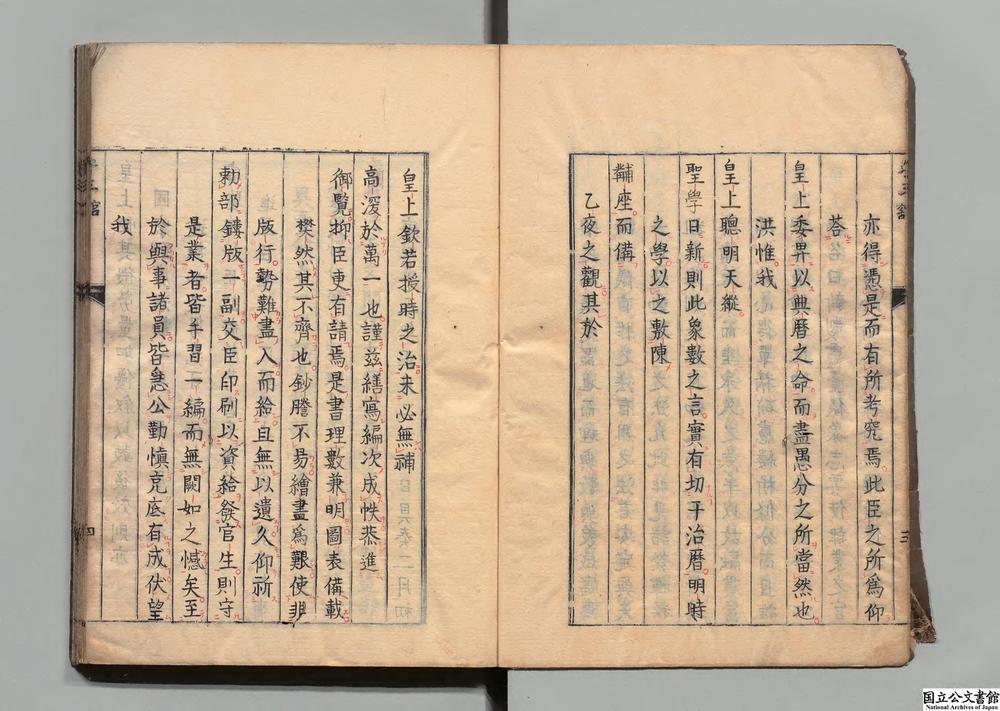 亦得憑是而有所考究焉此臣之所爲仰
荅
皇上委畀以典曆之命而盡愚分之所當然也
洪惟我
皇上聰明天縱
聖學日新則此象數之言實有切乎治曆明時
之學以之敷陳
黼座而備
乙夜之觀其於
皇上欽若授時之治未必無補
高深於萬一也謹茲繕寫編次成帙恭進
御覽抑臣更有請焉是書理數兼明圖表備載
樊然其不齊也鈔謄不易繪畫爲艱使非
版行勢難盡人而給且無以遺久仰祈
勅部鏤版一副交臣印刷以資給發官生則守
是業者皆手習一編而無闕如之憾矣至
於與事諸員皆急公勤慎克底有成伏望
我
四
國立公文書館
National Archives of Japan